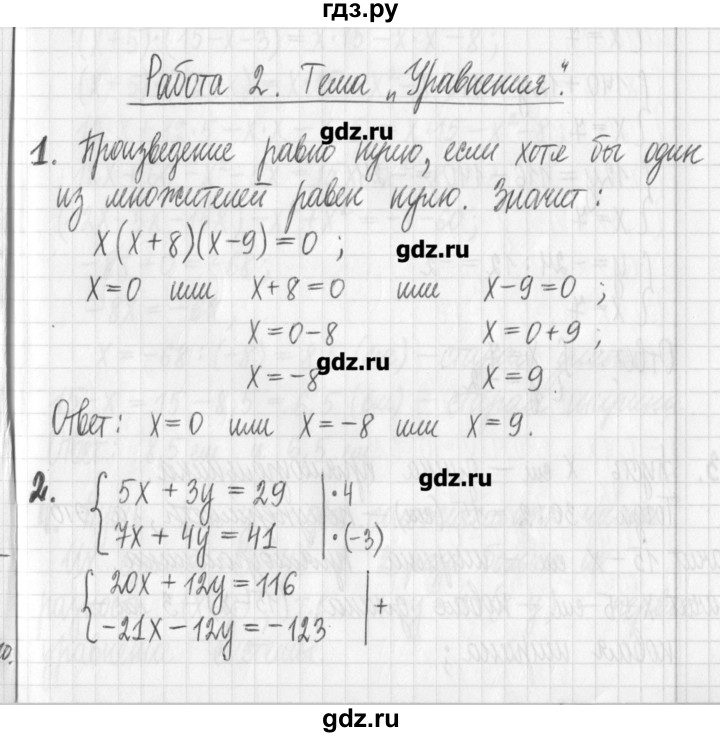 гдз.ру
Работа 2. Тема „Уравнения“.
gdz.ru
1. Произведение равно нулю, если хотя бы один
из множителей равен нулю. Значит:
x(x+8)(x-9)=0 ;
gdz.ru
x=0 или x+8=0 или x-9=0 ;
x=0-8 x=0+9 ;
gdz.ru
x=-8 x=9
Ответ: x=0 или x=-8 или x=9.
gdz.ru
2. { 5x + 3y = 29 | ·4
7x + 4y = 41 | ·(-3)
{ 20x + 12y = 116 | +
-21x - 12y = -123
gdz.ru